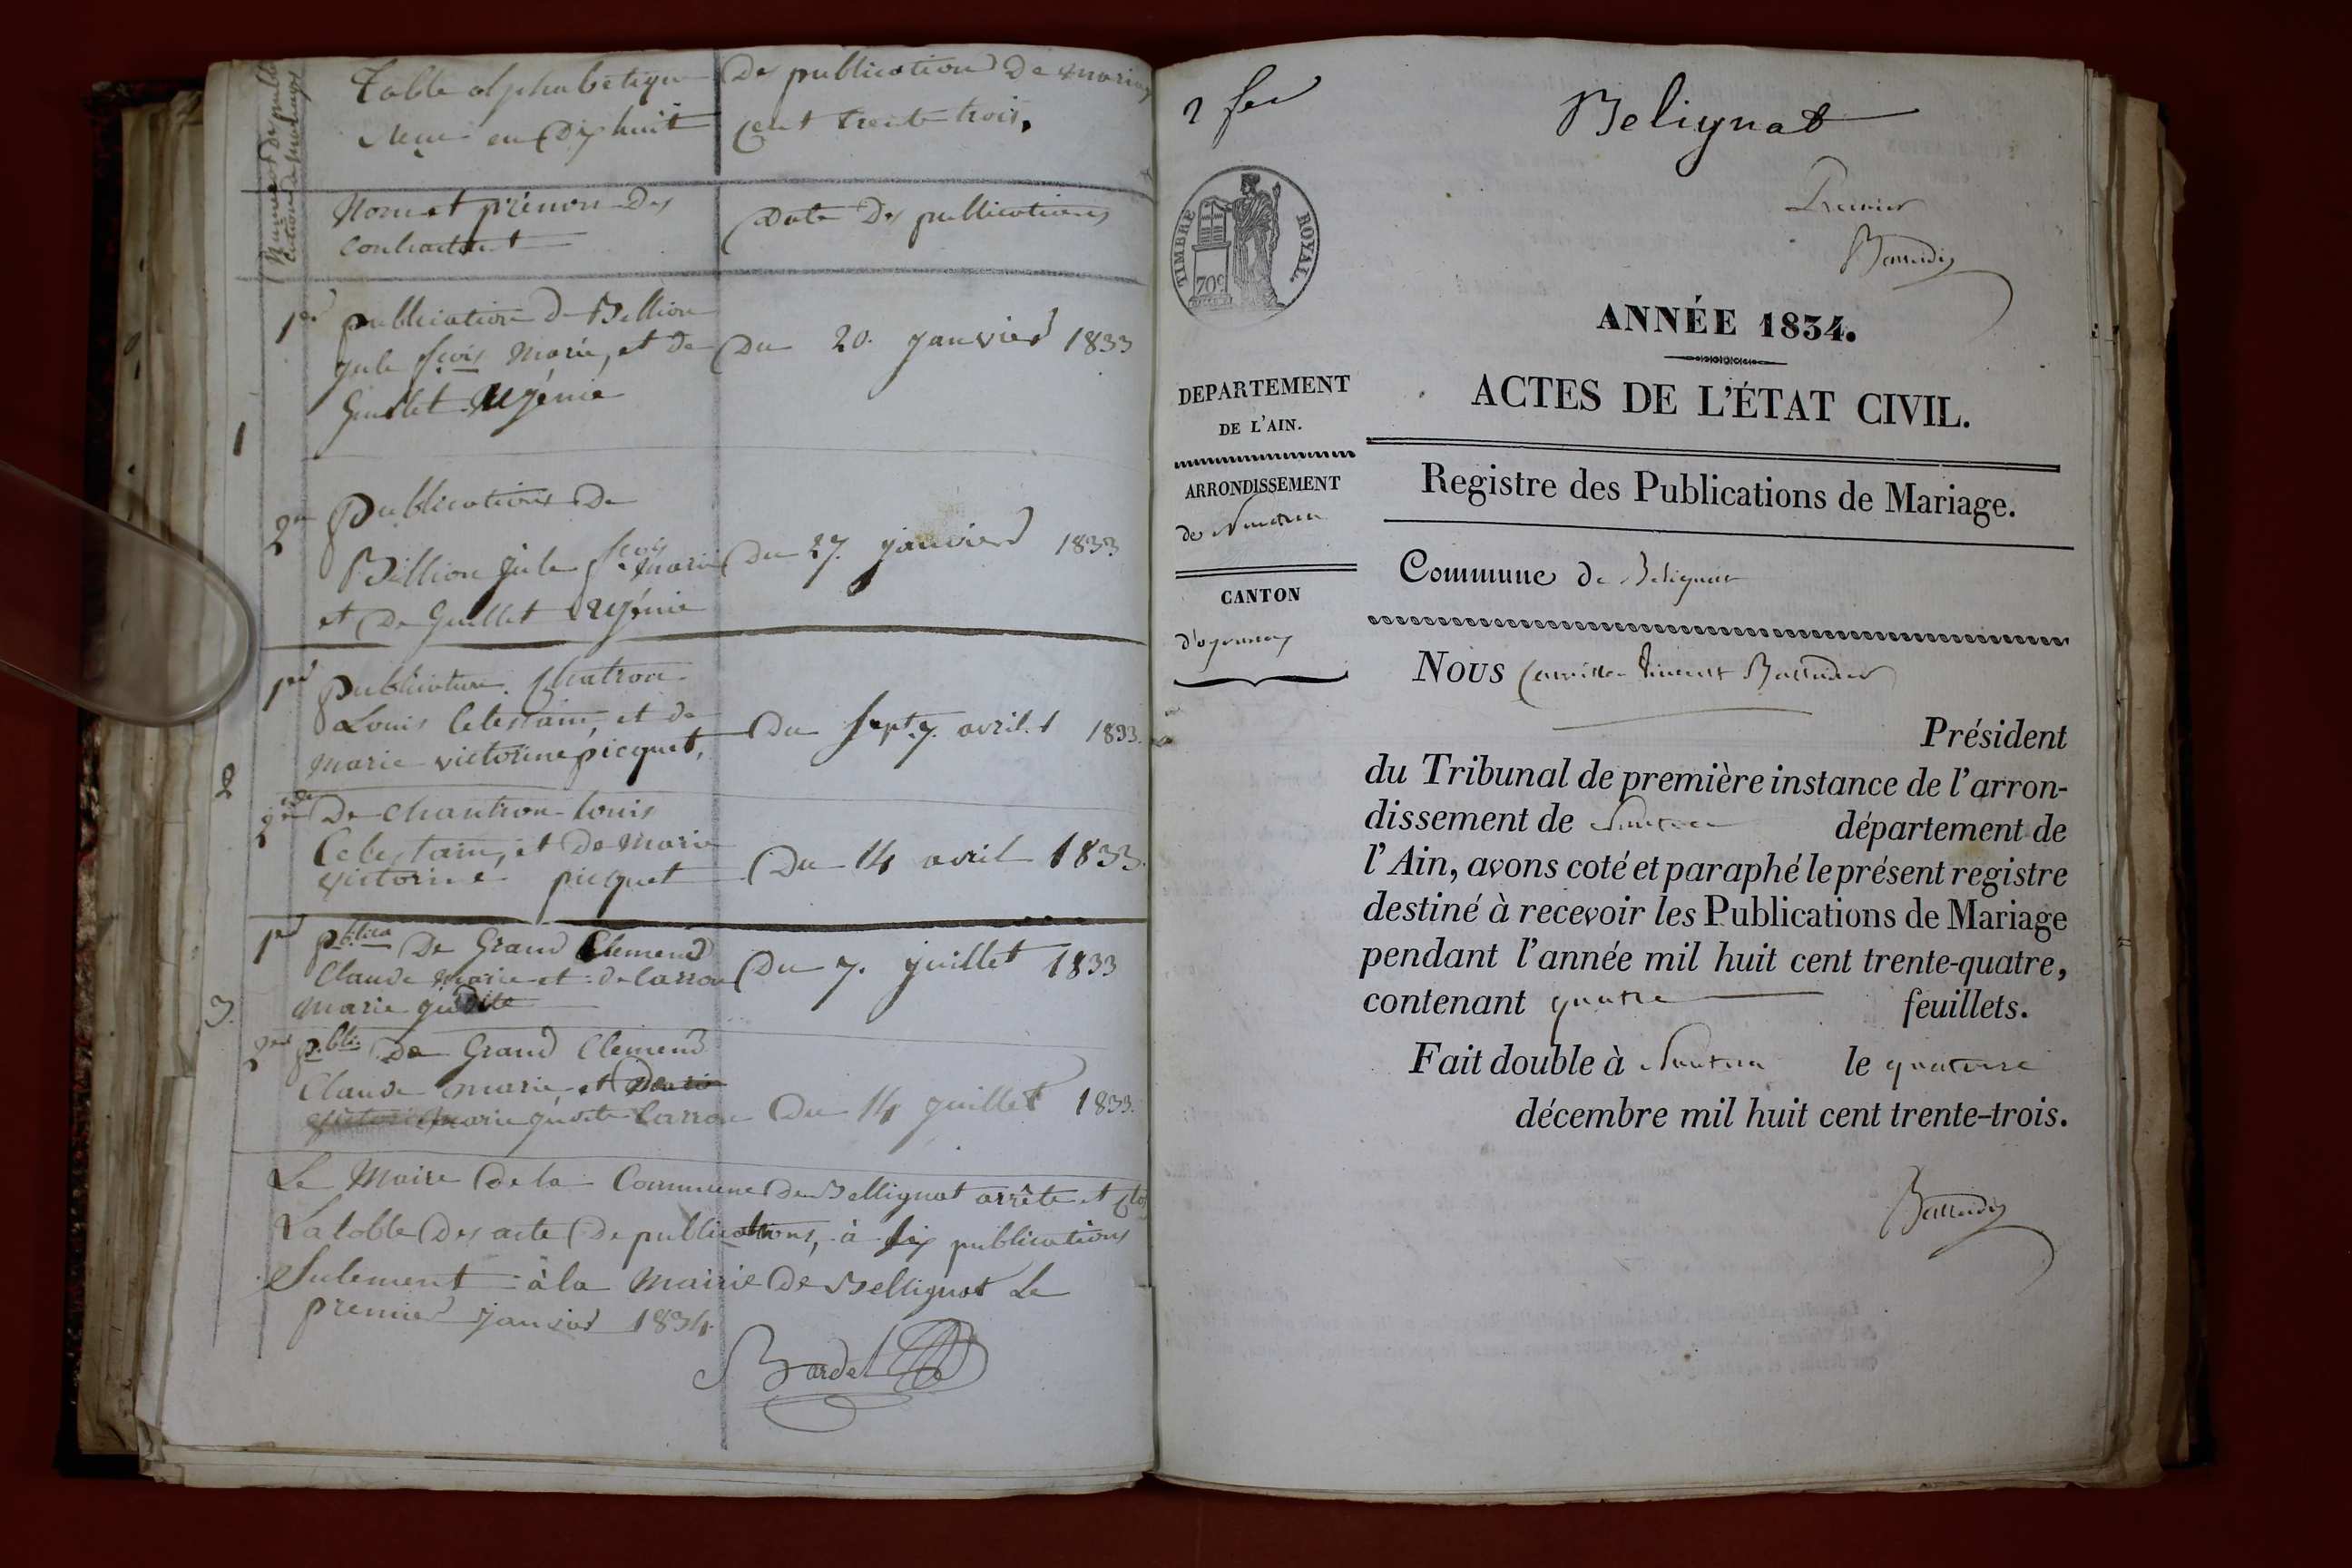 Table alphabétique Des publication De mariag
Reçue en Dix huit Cent trente trois.
Numero De publi
cation De mariages
Nom et prénom Des
Contractant
Date Des publications
1
1er publication De Billion
Jule fcois Marie, et De
Guillet Ugénie
Du 20. janvier 1833
2em Publications De
Billion Jule fcois Marie
et De Guillet Ugénie
Du 27. janvier 1833
2
1er Publication. Chatron
Louis Celestain, et de
Marie victorine picquet,
Du Sept. 7. avril. 1 1833.
2em De Chantron Louis
Celestain, et De Marie
victorine picquet
Du 14 avril 1833.
3.
1er pblica De Grand Clemend
Claude Marie et de Carron
Marie Judite
Du 7. juillet 1833
2em p.bli. De Grand Clemend
Claude marie et
Marie Judite Carron
Du 14 juillet 1833.
Le Maire De la Commune De Bellignat arrête et Clos
La table Des acte De publications, à Six publications
Sulement à la Mairie De Bellignat Le
premier janvier 1834.
Bardet
1 fer
Belignat
Premier
TIMBRE ROYAL.
70c
ANNÉE 1834.
ACTES DE L'ÉTAT CIVIL.
DEPARTEMENT
DE L'AIN.
ARRONDISSEMENT
de Nantua
CANTON
d'oyonnax
Registre des Publications de Mariage.
Commune de Belignat
Nous
Président
du Tribunal de première instance de l'arron-
dissement de Nantua département de
l'Ain, avons coté et paraphé le présent registre
destiné à recevoir les Publications de Mariage
pendant l'année mil huit cent trente-quatre,
contenant quatre feuillets.
Fait double à Nantua le quatorze
décembre mil huit cent trente-trois.